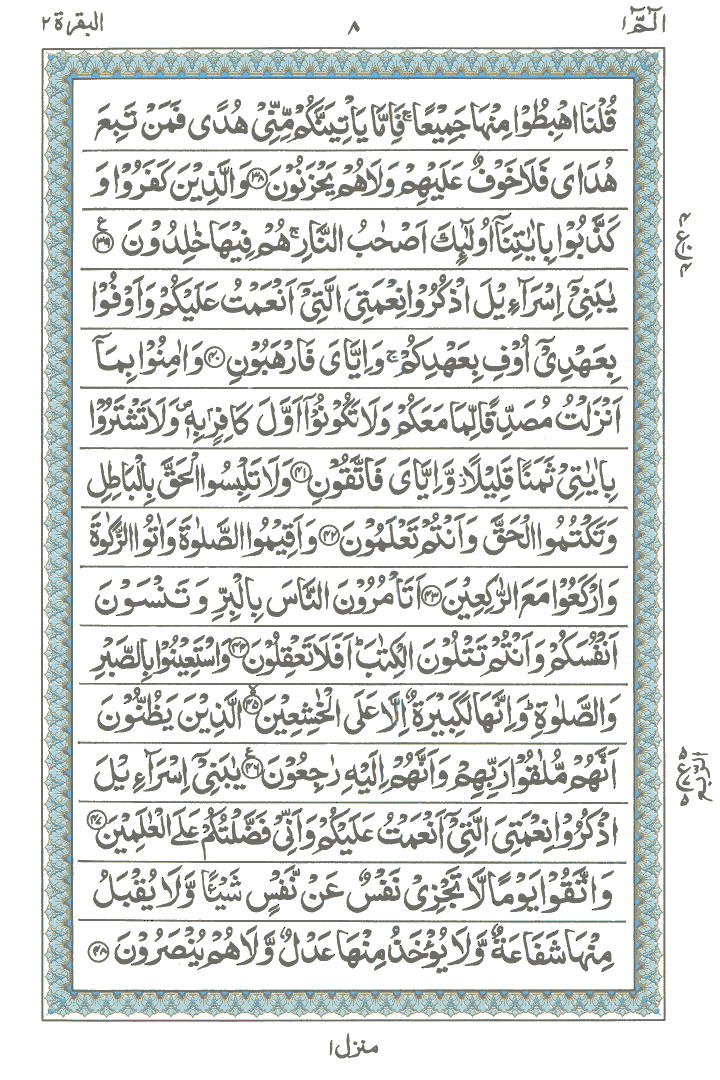 الٓمّٓ ١ ٨ البقرة ٢
قُلْنَا اهْبِطُوْا مِنْهَا جَمِيْعًا ۚ فَاِمَّا يَاْتِيَنَّكُمْ مِّنِّيْ هُدًى فَمَنْ تَبِعَ
هُدَايَ فَلَا خَوْفٌ عَلَيْهِمْ وَلَا هُمْ يَحْزَنُوْنَ ﴿٣٨﴾ وَالَّذِيْنَ كَفَرُوْا وَ
كَذَّبُوْا بِاٰيٰتِنَاۤ اُولٰٓئِكَ اَصْحٰبُ النَّارِ ۚ هُمْ فِيْهَا خٰلِدُوْنَ ﴿٣٩﴾ ع
يٰبَنِيْۤ اِسْرَآءِيْلَ اذْكُرُوْا نِعْمَتِيَ الَّتِيْۤ اَنْعَمْتُ عَلَيْكُمْ وَاَوْفُوْا
بِعَهْدِيْۤ اُوْفِ بِعَهْدِكُمْ ۚ وَاِيَّايَ فَارْهَبُوْنِ ﴿٤٠﴾ وَاٰمِنُوْا بِمَاۤ
اَنْزَلْتُ مُصَدِّقًا لِّمَا مَعَكُمْ وَلَا تَكُوْنُوْۤا اَوَّلَ كَافِرٍۭ بِهٖ ۪ وَلَا تَشْتَرُوْا
بِاٰيٰتِيْ ثَمَنًا قَلِيْلًا ؗ وَّاِيَّايَ فَاتَّقُوْنِ ﴿٤١﴾ وَلَا تَلْبِسُوا الْحَقَّ بِالْبَاطِلِ
وَتَكْتُمُوا الْحَقَّ وَاَنْتُمْ تَعْلَمُوْنَ ﴿٤٢﴾ وَاَقِيْمُوا الصَّلٰوةَ وَاٰتُوا الزَّكٰوةَ
وَارْكَعُوْا مَعَ الرّٰكِعِيْنَ ﴿٤٣﴾ اَتَاْمُرُوْنَ النَّاسَ بِالْبِرِّ وَتَنْسَوْنَ
اَنْفُسَكُمْ وَاَنْتُمْ تَتْلُوْنَ الْكِتٰبَ ؕ اَفَلَا تَعْقِلُوْنَ ﴿٤٤﴾ وَاسْتَعِيْنُوْا بِالصَّبْرِ
وَالصَّلٰوةِ ؕ وَاِنَّهَا لَكَبِيْرَةٌ اِلَّا عَلَى الْخٰشِعِيْنَ ﴿٤٥﴾ الَّذِيْنَ يَظُنُّوْنَ
اَنَّهُمْ مُّلٰقُوْا رَبِّهِمْ وَاَنَّهُمْ اِلَيْهِ رٰجِعُوْنَ ﴿٤٦﴾ ع يٰبَنِيْۤ اِسْرَآءِيْلَ
اذْكُرُوْا نِعْمَتِيَ الَّتِيْۤ اَنْعَمْتُ عَلَيْكُمْ وَاَنِّيْ فَضَّلْتُكُمْ عَلَى الْعٰلَمِيْنَ ﴿٤٧﴾
وَاتَّقُوْا يَوْمًا لَّا تَجْزِيْ نَفْسٌ عَنْ نَّفْسٍ شَيْـًٔا وَّلَا يُقْبَلُ
مِنْهَا شَفَاعَةٌ وَّلَا يُؤْخَذُ مِنْهَا عَدْلٌ وَّلَا هُمْ يُنْصَرُوْنَ ﴿٤٨﴾
٤ ع ٤
٥ ع ٥
الربع
منزل ١